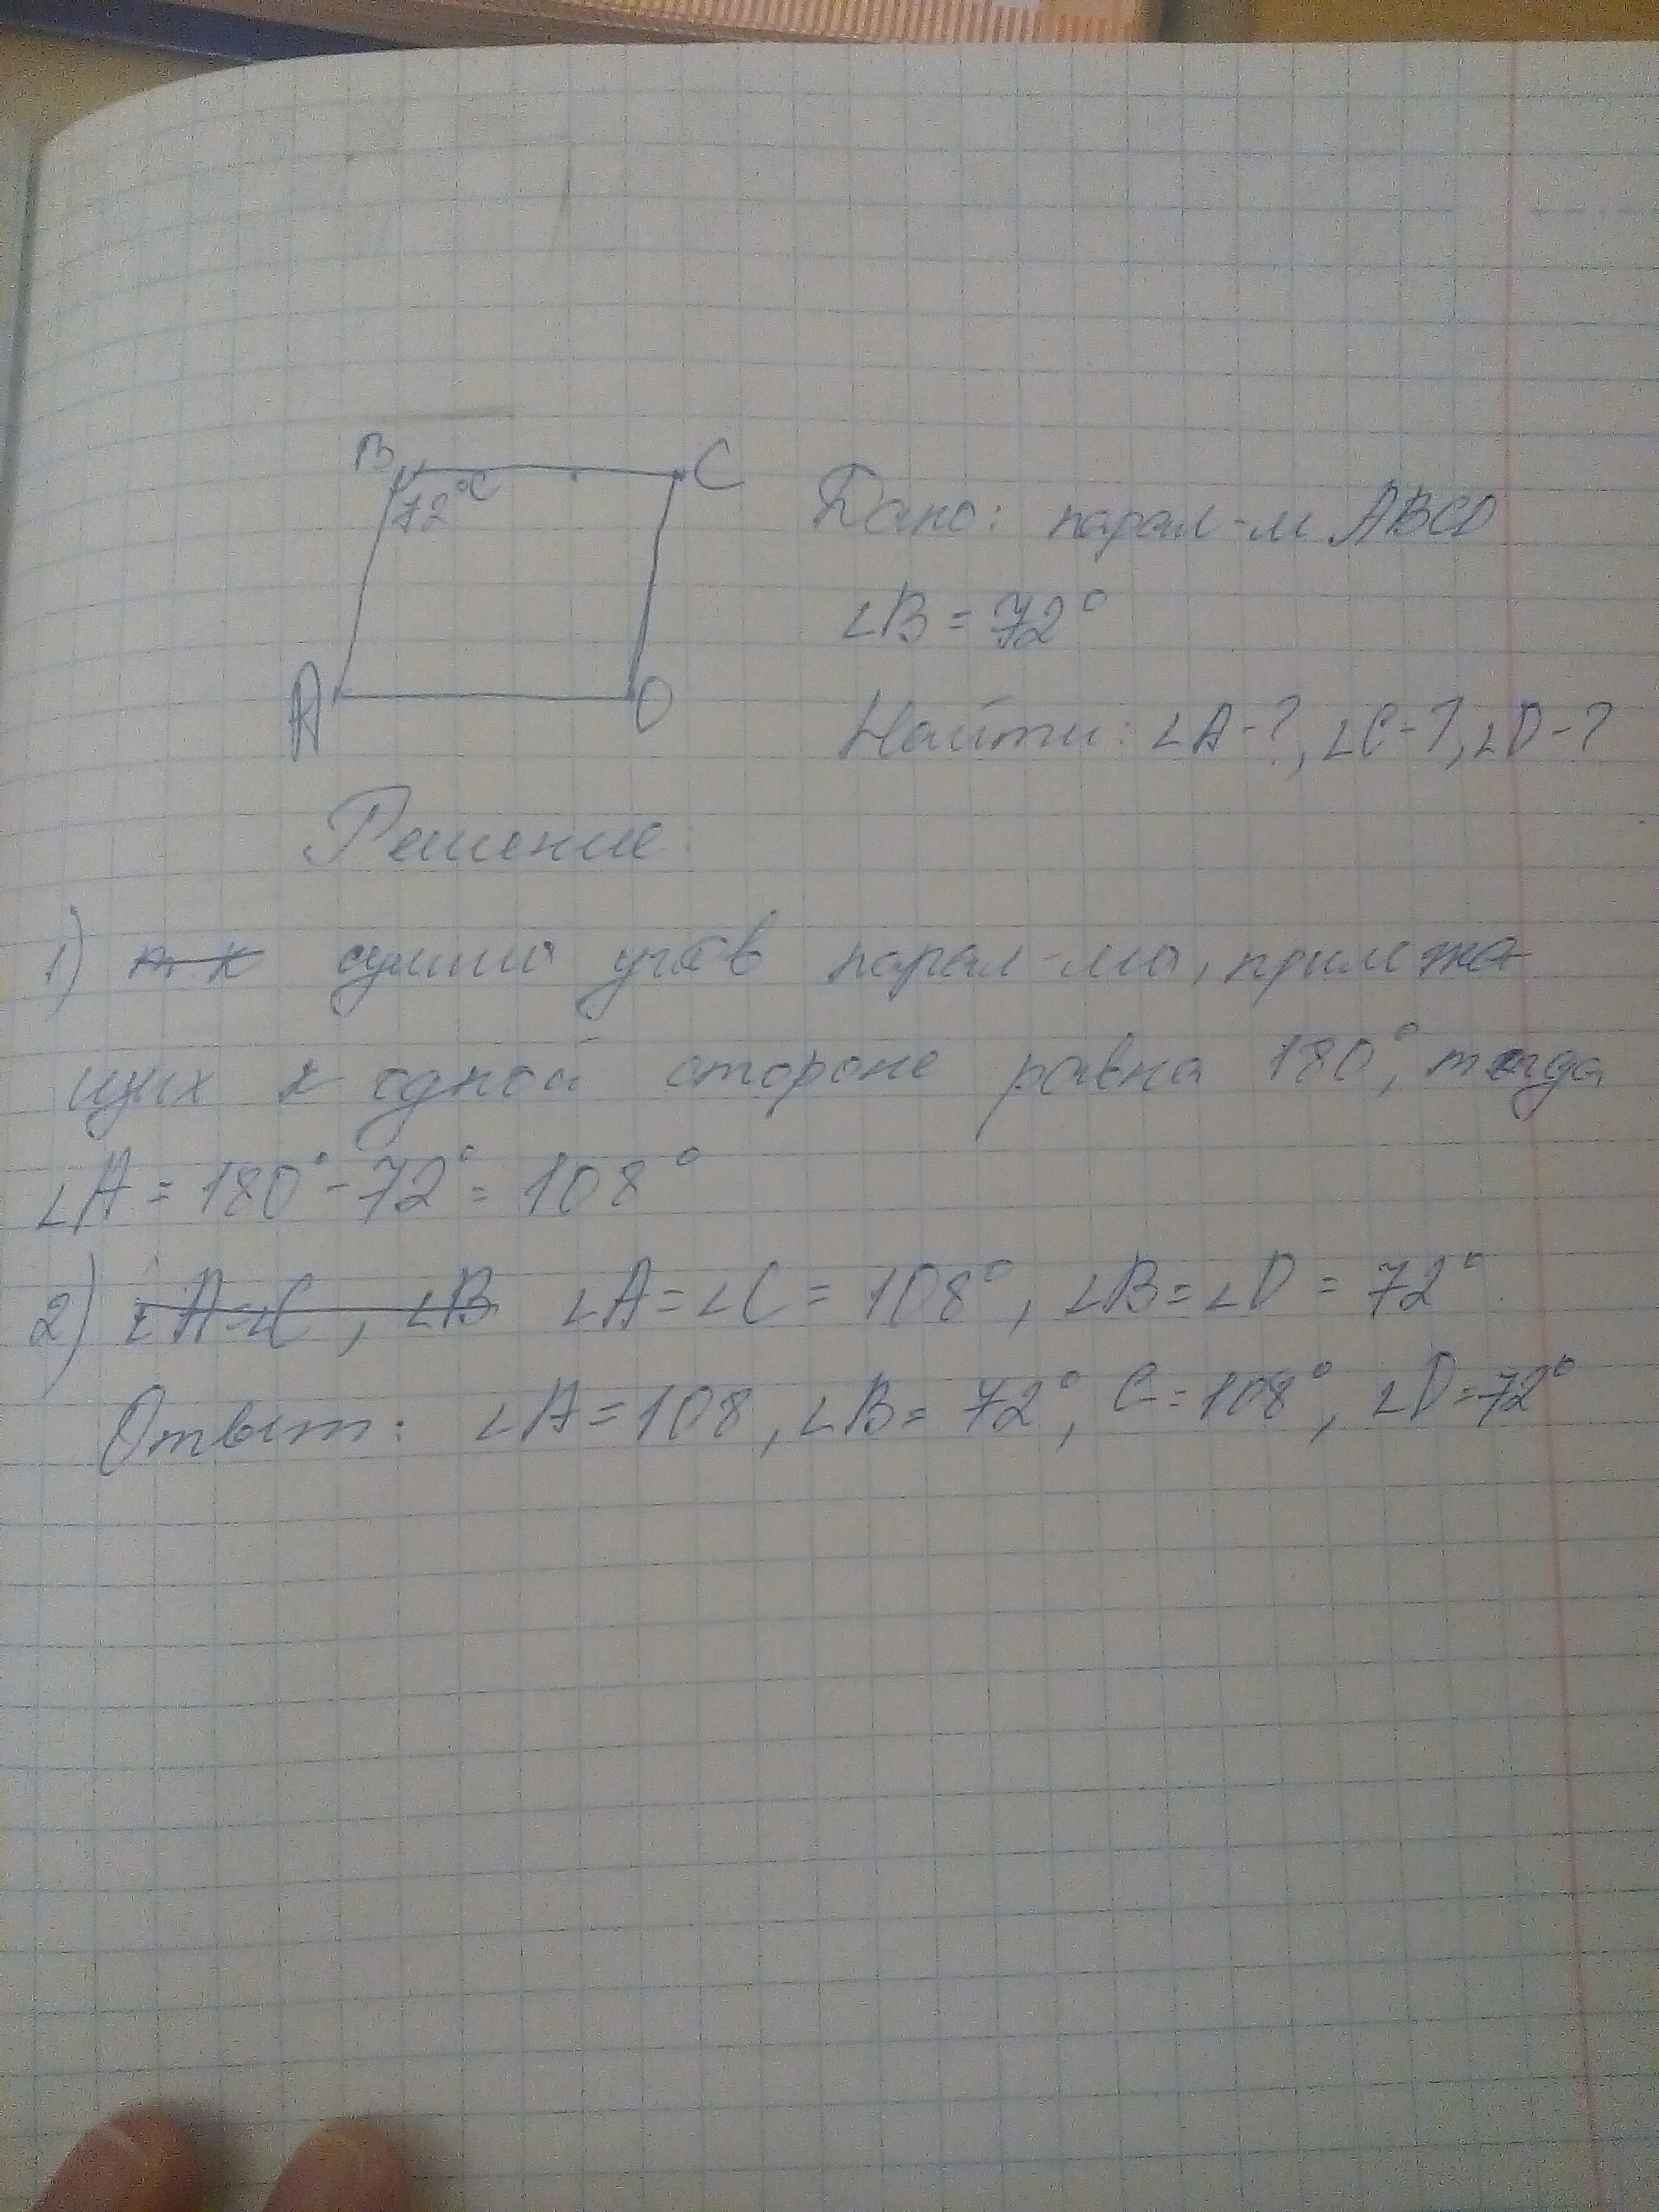 B
C
72°C
A
D
Дано: парал-м ABCD
∠B = 72°
Найти: ∠A-?, ∠C-?, ∠D-?
Решение:
1) т к сумма углов парал-ма, прилежа-
щих к одной стороне равна 180°, тогда
∠A = 180° - 72° = 108°
2) ∠A=∠C, ∠B ∠A = ∠C = 108°, ∠B = ∠D = 72°
Ответ: ∠A = 108, ∠B = 72°, C = 108°, ∠D = 72°